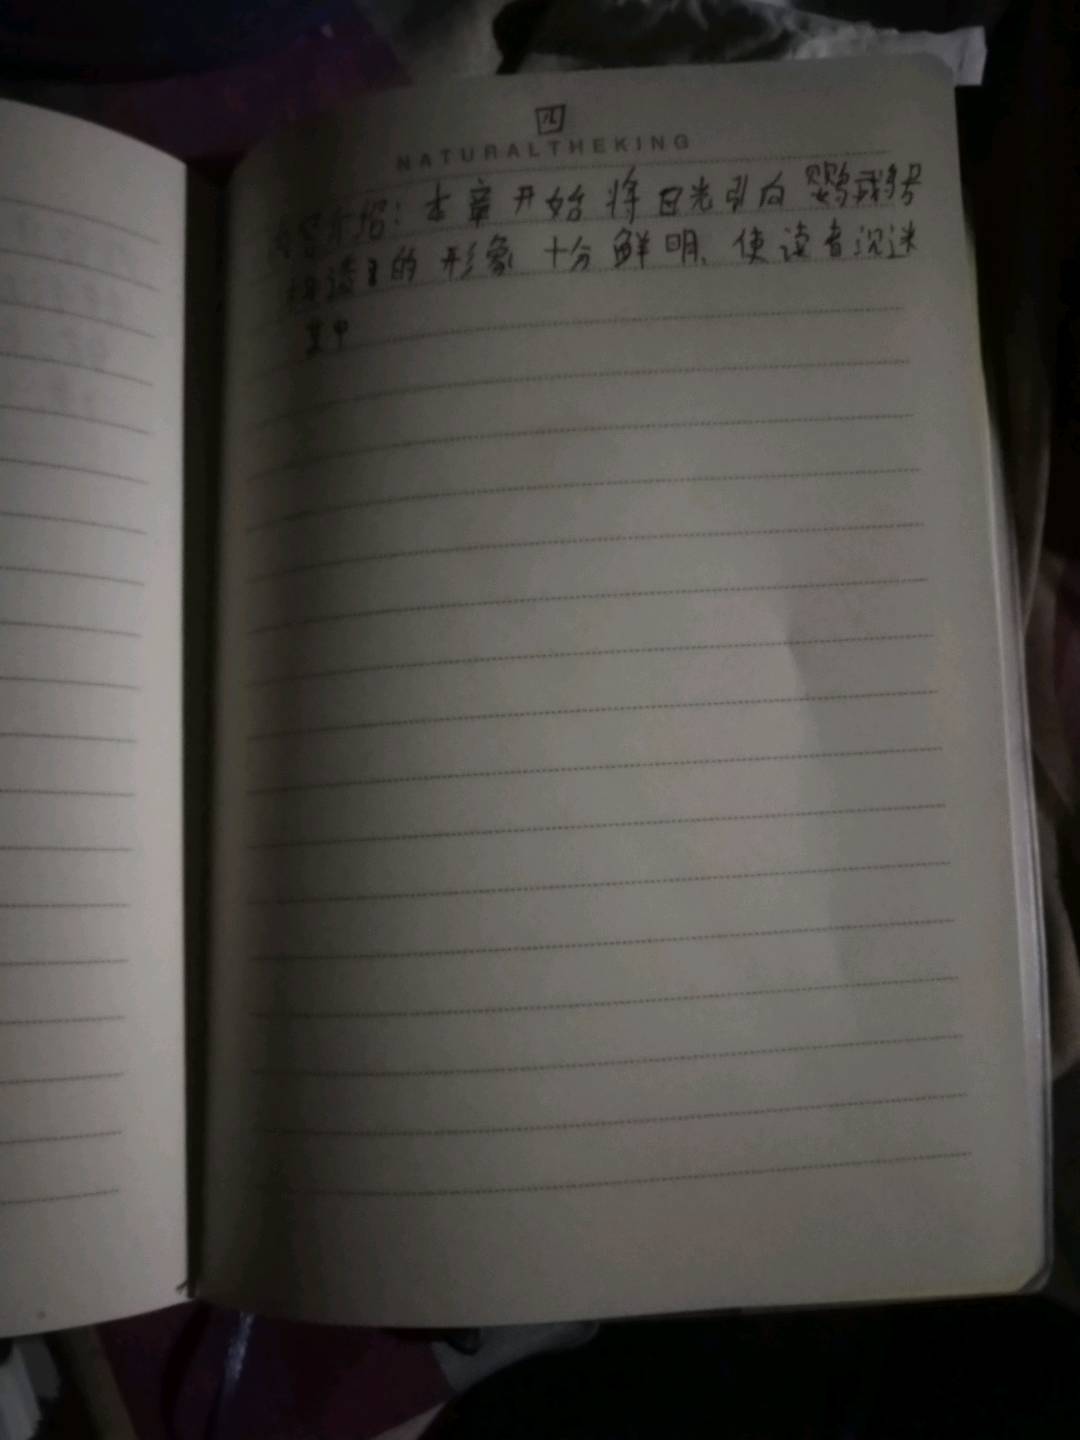 四
NATURALTHEKING
介绍：本章开始将目光引向鹦鹉螺号
的形象十分鲜明、使读者沉迷
其中